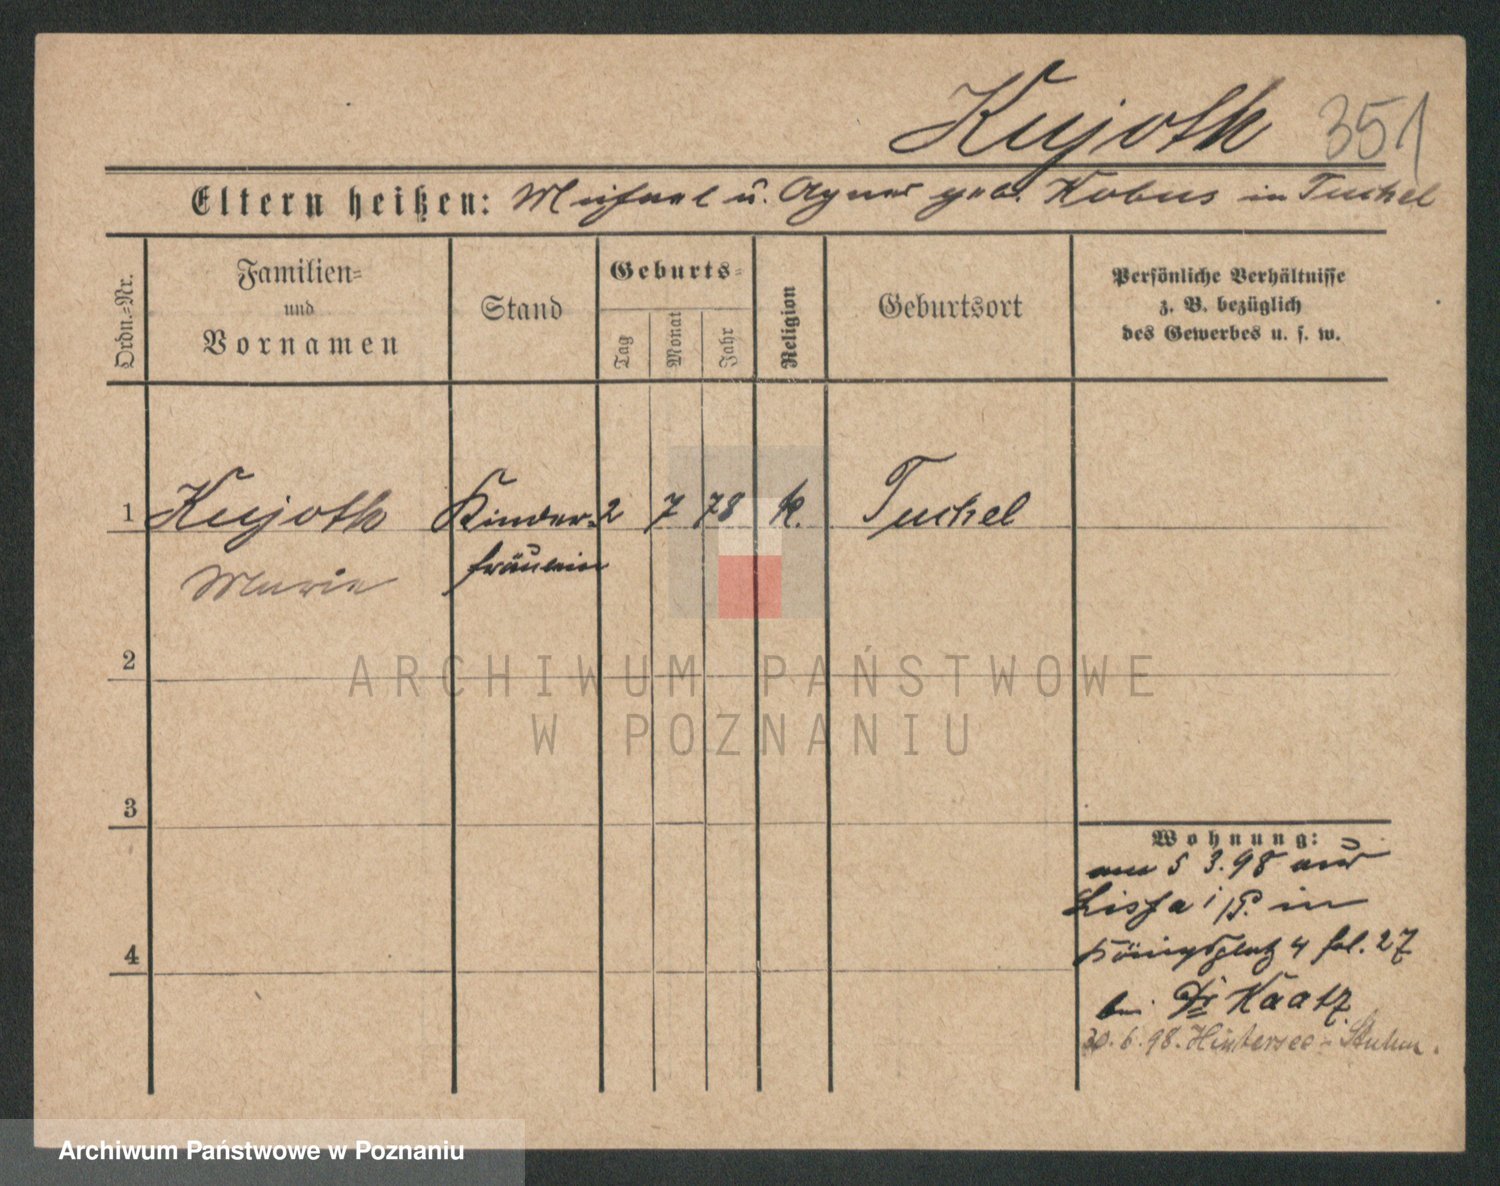 Kujoth 351
Eltern heißen: Michael u. Agnes geb. Kobus in Tuchel
Ordn.-Nr.
Familien-
und
Vornamen
Stand
Geburts-
Tag
Monat
Jahr
Religion
Geburtsort
Persönliche Verhältnisse
z. B. bezüglich
des Gewerbes u. s. w.
1 Kujoth Kinder- 2 7 78 k. Tuchel
Marie fräulein
2
ARCHIWUM PAŃSTWOWE
W POZNANIU
3
Wohnung:
am 5 3. 98 aus
Lissa i/P. in
4 Königsplatz 4 fol. 27
bei Dr Kaatz
30. 6. 98. Hintersee - Stuhm.
Archiwum Państwowe w Poznaniu